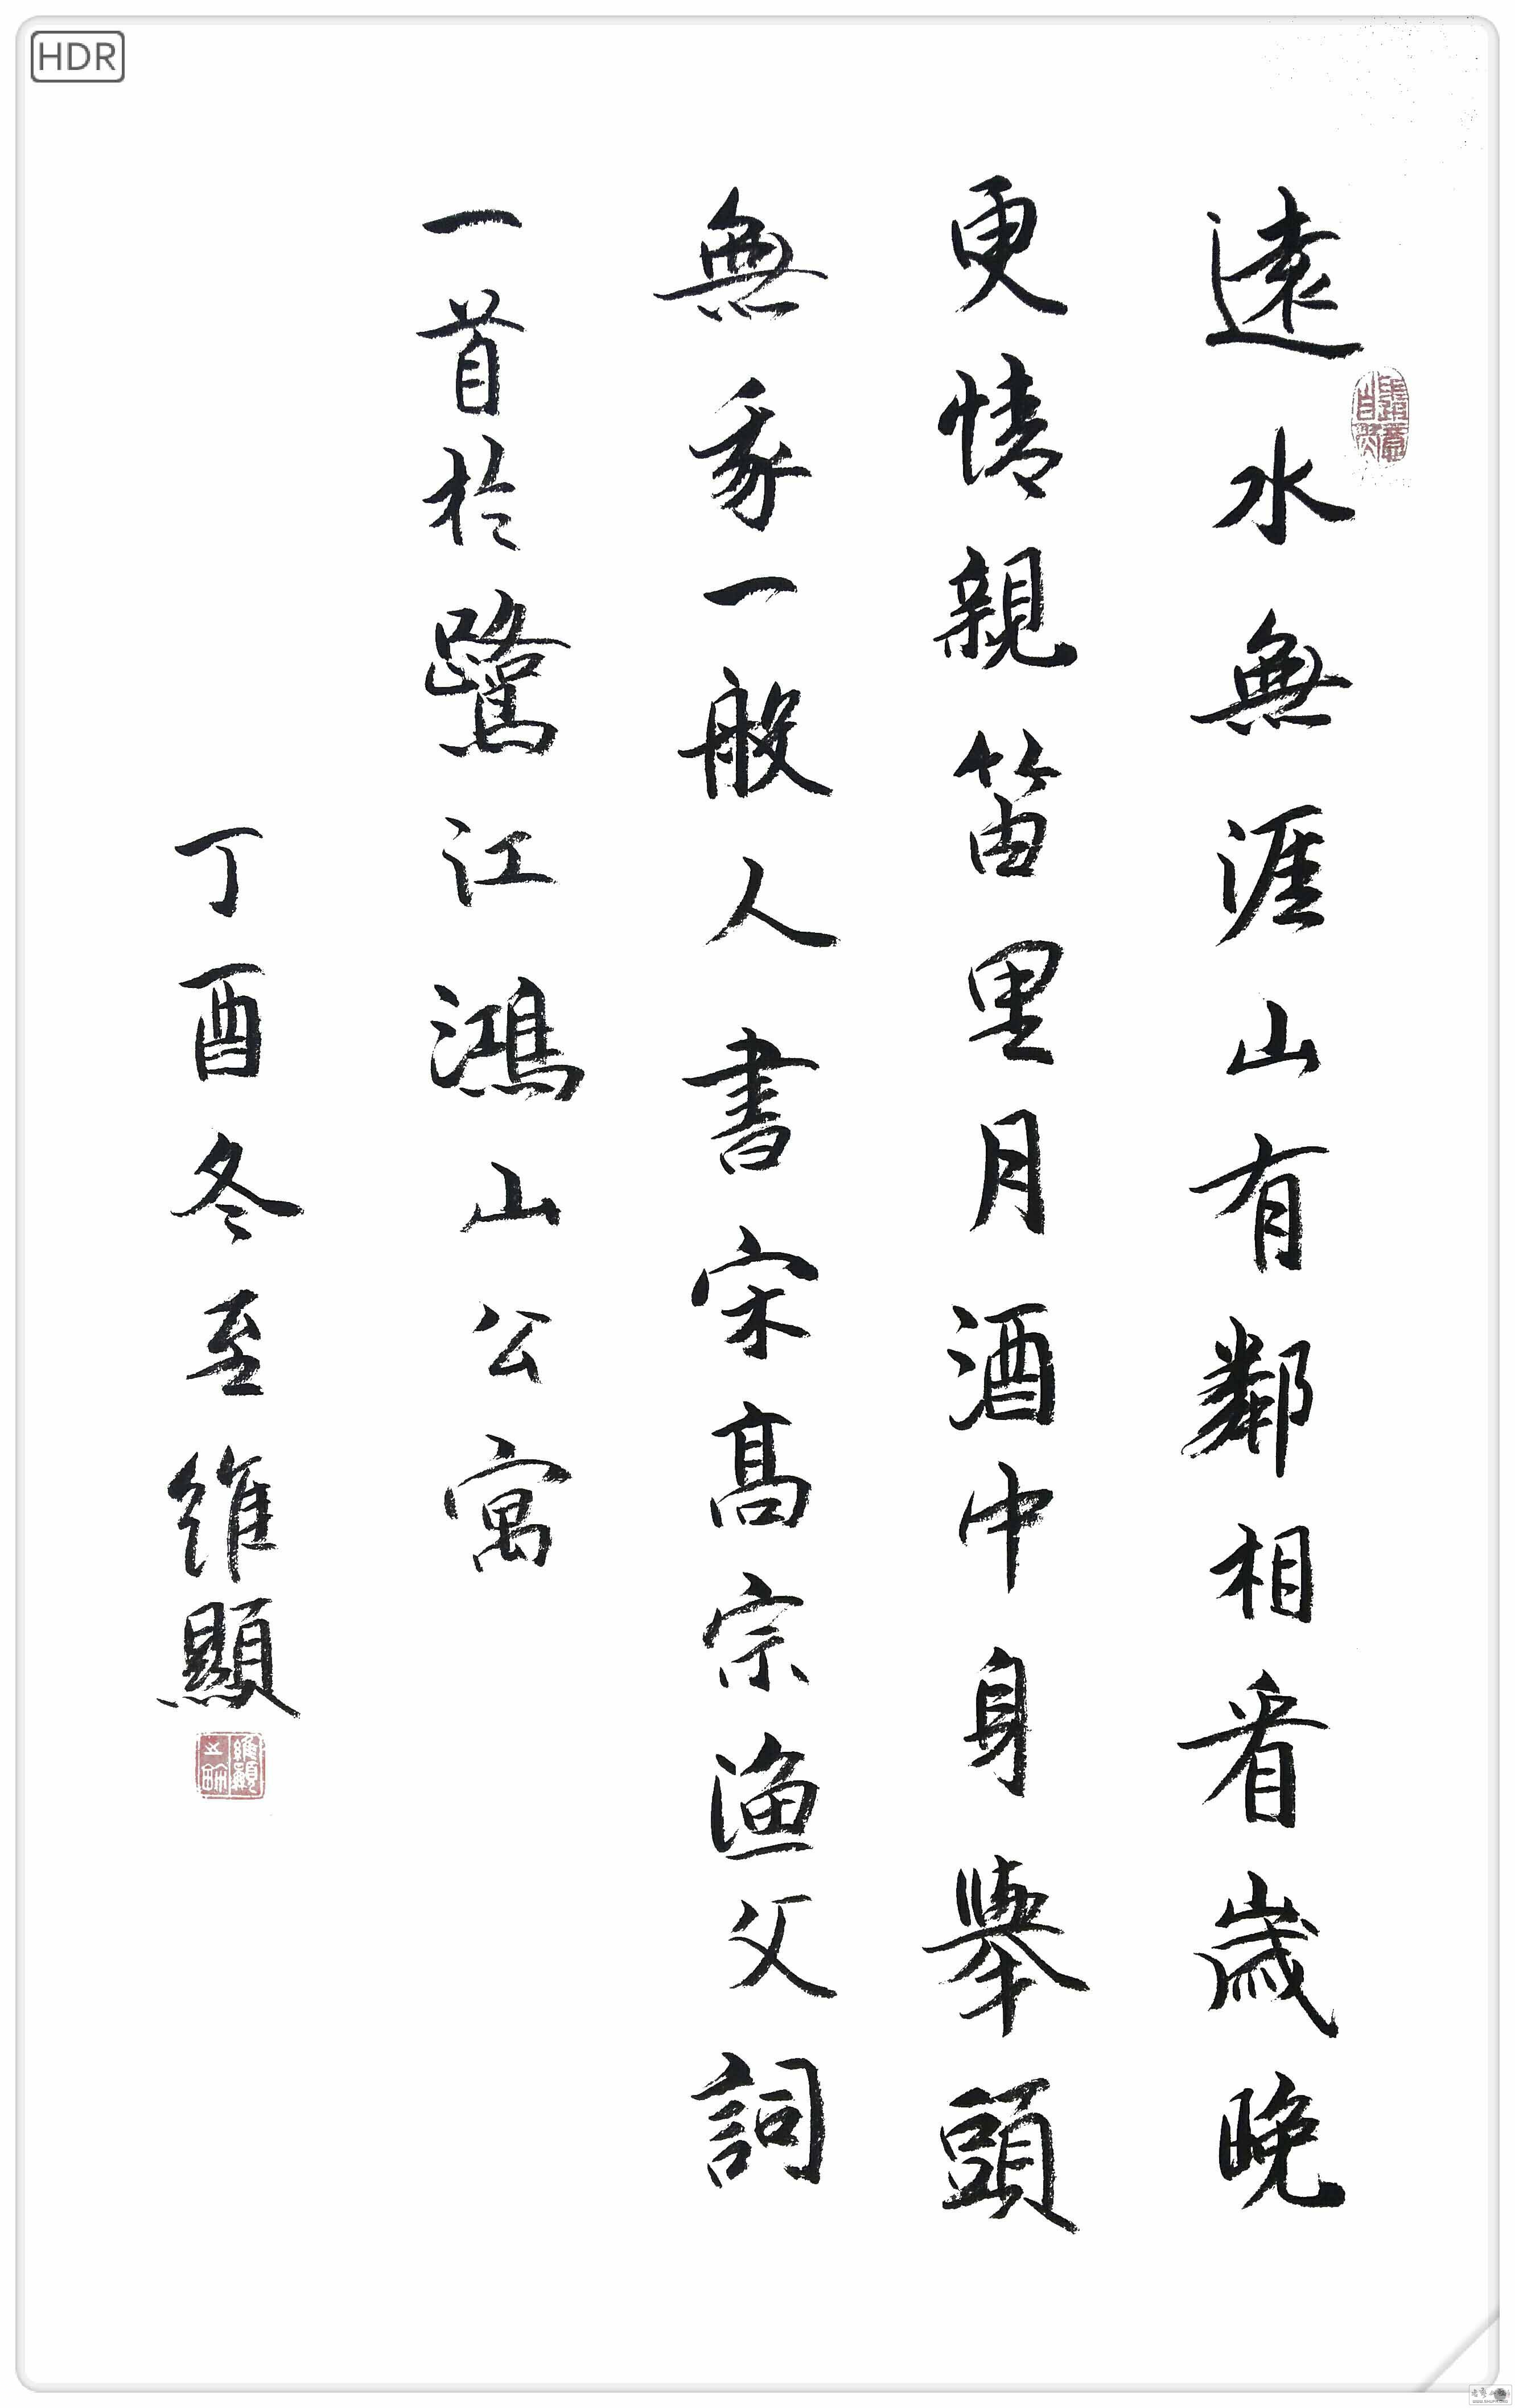 HDR
遠水無涯山有鄰相看歲晚
更情親笛里月酒中身舉頭
無我一般人書宋高宗漁父詞
一首於鷺江鴻山公寓
丁酉冬至維顯